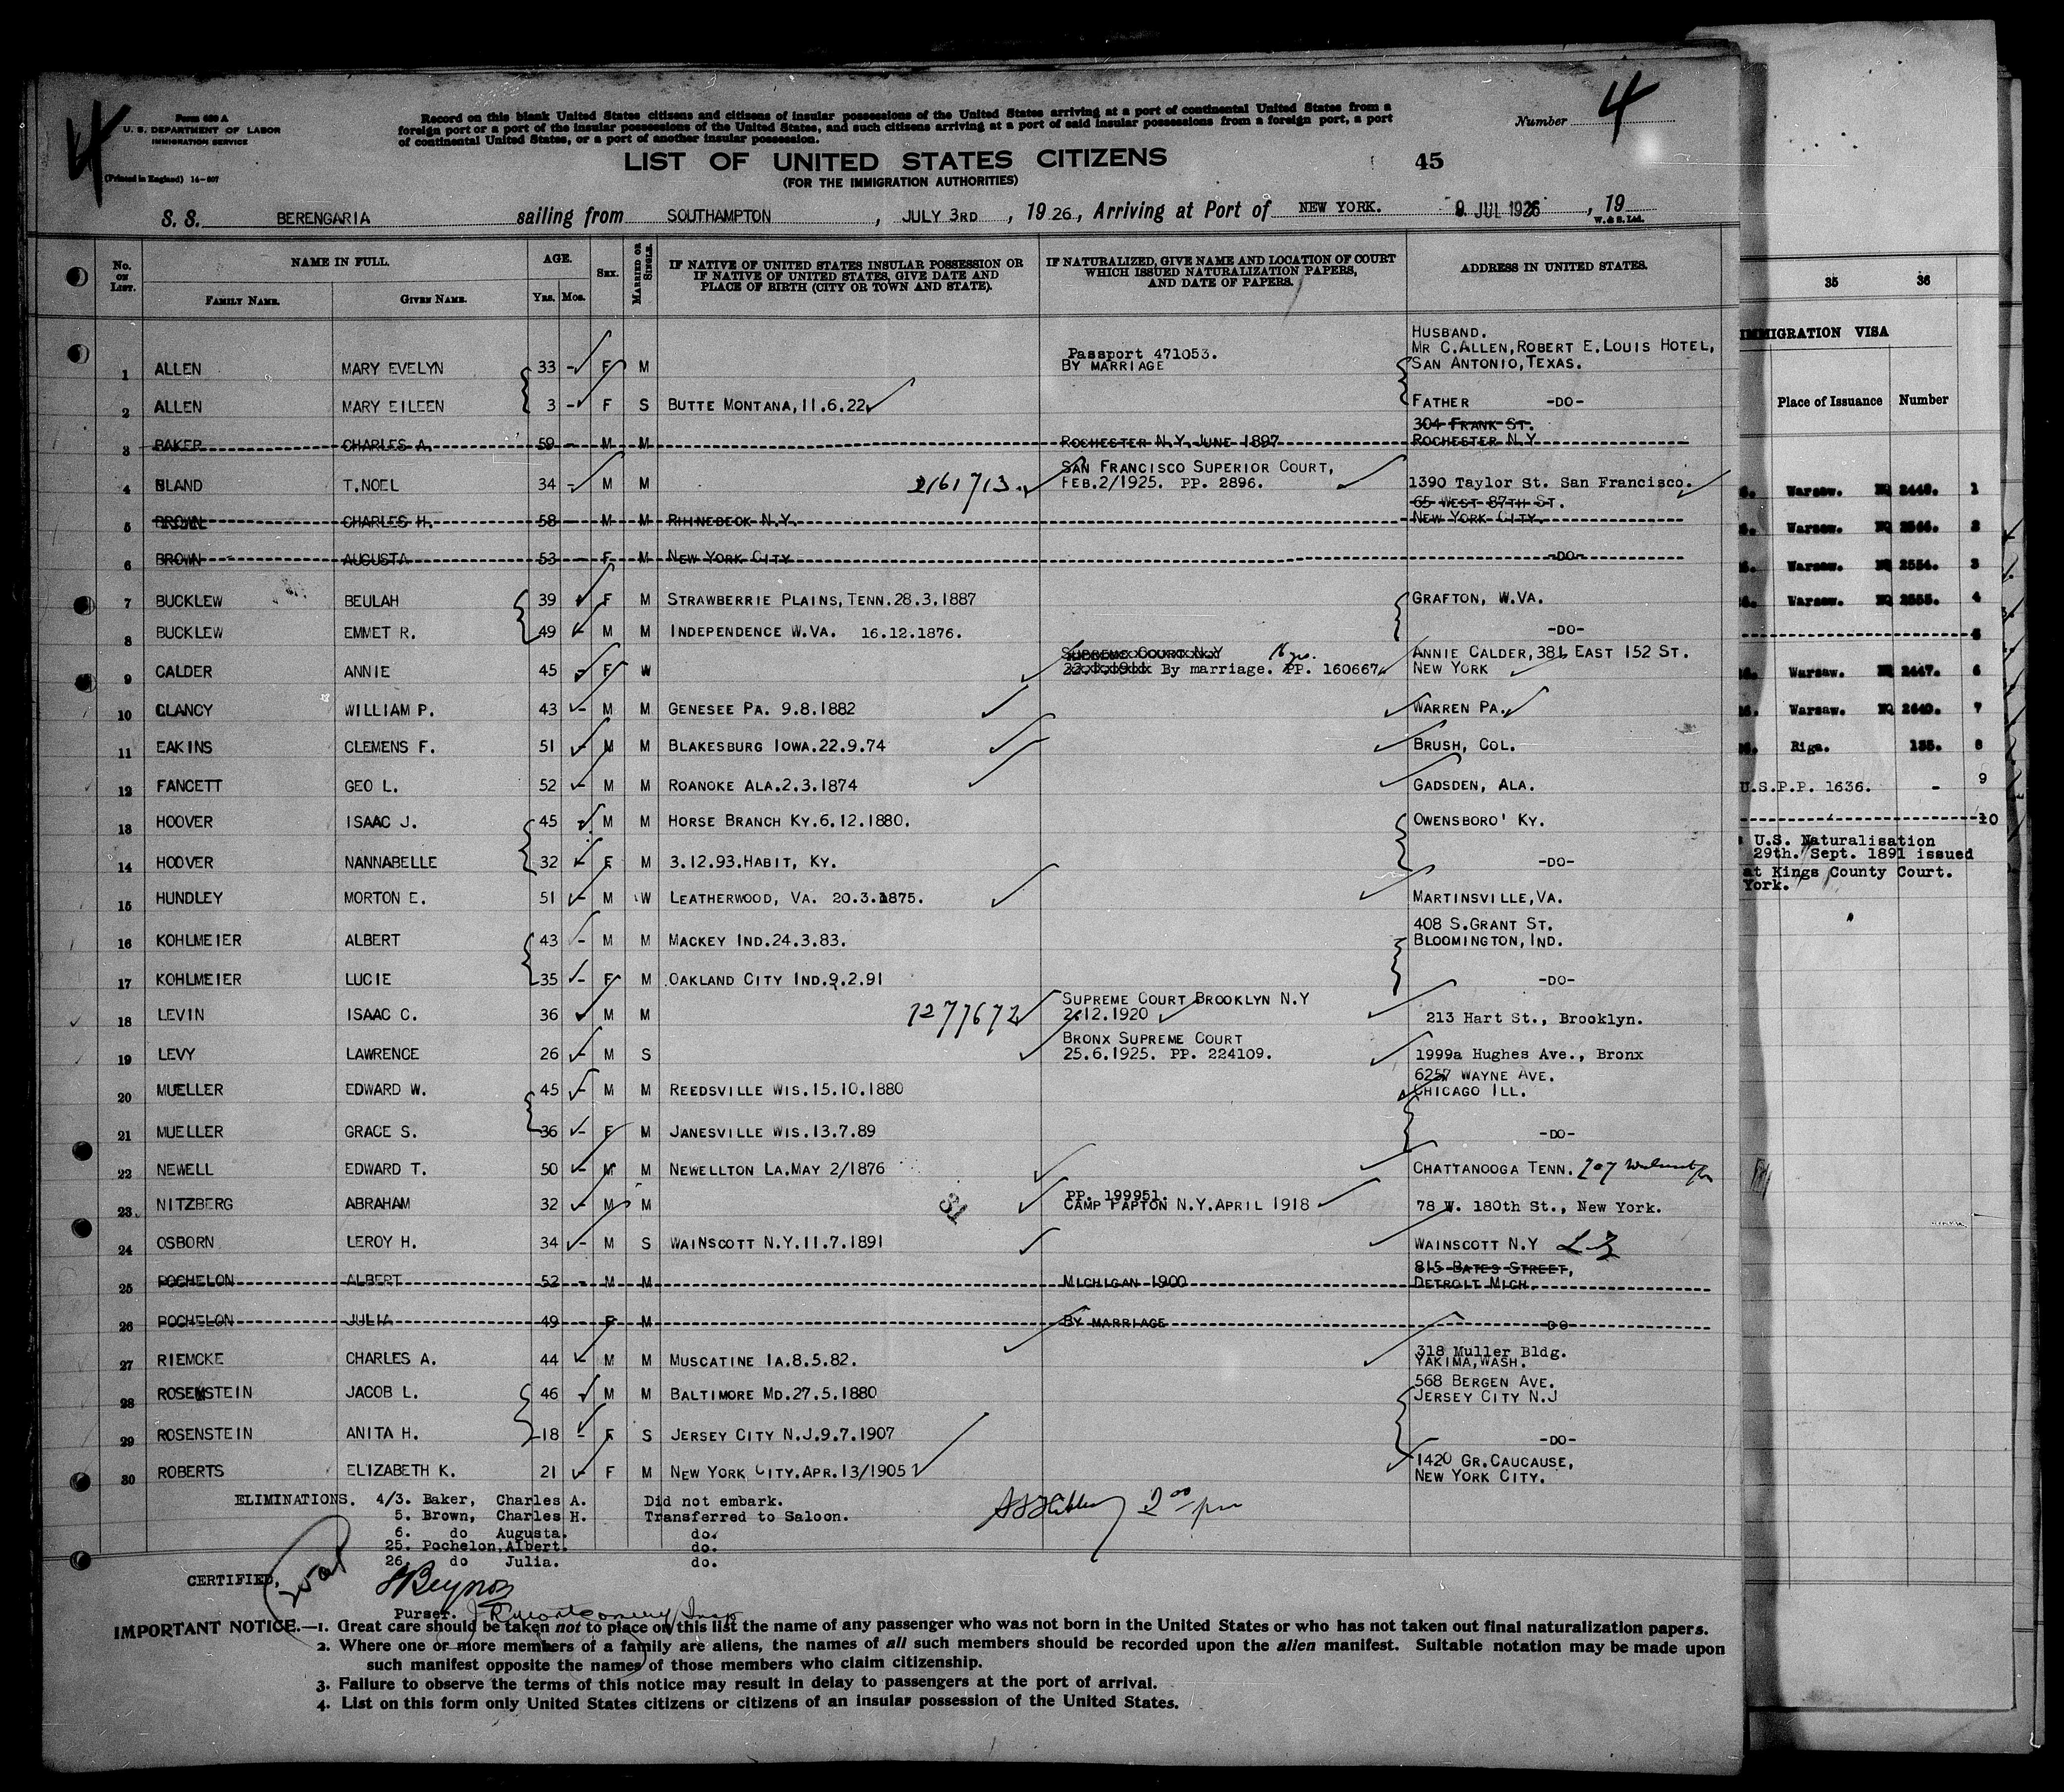 4
4
Form 630 A
U. S. DEPARTMENT OF LABOR
IMMIGRATION SERVICE
(Printed in England) 14-607
Record on this blank United States citizens and citizens of insular possessions of the United States arriving at a port of continental United States from a
foreign port or a port of the insular possessions of the United States, and such citizens arriving at a port of said insular possessions from a foreign port, a port
of continental United States, or a port of another insular possession.
Number
LIST OF UNITED STATES CITIZENS
45
(FOR THE IMMIGRATION AUTHORITIES)
S. S. BERENGARIA sailing from SOUTHAMPTON, JULY 3RD, 1926, Arriving at Port of NEW YORK. 9 JUL 1926, 19
W. & S. Ltd.
No. ON LIST. NAME IN FULL. AGE. SEX. MARRIED OR SINGLE. IF NATIVE OF UNITED STATES INSULAR POSSESSION OR IF NATIVE OF UNITED STATES, GIVE DATE AND PLACE OF BIRTH (CITY OR TOWN AND STATE). IF NATURALIZED, GIVE NAME AND LOCATION OF COURT WHICH ISSUED NATURALIZATION PAPERS, AND DATE OF PAPERS. ADDRESS IN UNITED STATES.
FAMILY NAME. GIVEN NAME. YRS. MOS.
HUSBAND.
Passport 471053. MR C.ALLEN, ROBERT E. LOUIS HOTEL,
1 ALLEN MARY EVELYN 33 - F M BY MARRIAGE SAN ANTONIO, TEXAS.
2 ALLEN MARY EILEEN 3 - F S BUTTE MONTANA, 11.6.22 FATHER -DO-
304 FRANK ST.
3 BAKER CHARLES A. 59 - M M ROCHESTER N.Y. JUNE 1897 ROCHESTER N.Y
SAN FRANCISCO SUPERIOR COURT,
4 BLAND T.NOEL 34 - M M 2161713. FEB.2/1925. PP. 2896. 1390 Taylor St. San Francisco.
65 WEST 87TH ST.
5 BROWN CHARLES H. 58 - M M RHINEBECK N.Y. NEW YORK CITY.
6 BROWN AUGUSTA 53 - F M NEW YORK CITY -DO-
7 BUCKLEW BEULAH 39 F M STRAWBERRIE PLAINS, TENN. 28.3.1887 GRAFTON, W.VA.
8 BUCKLEW EMMET R. 49 - M M INDEPENDENCE W.VA. 16.12.1876. -DO-
SUPREME COURT N.Y 16 yrs. ANNIE CALDER, 381 EAST 152 ST.
9 CALDER ANNIE 45 - F W By marriage. PP. 160667 NEW YORK
10 CLANCY WILLIAM P. 43 - M M GENESEE PA. 9.8.1882 WARREN PA.
11 EAKINS CLEMENS F. 51 - M M BLAKESBURG IOWA. 22.9.74 BRUSH, COL.
12 FANCETT GEO L. 52 - M M ROANOKE ALA. 2.3.1874 GADSDEN, ALA.
13 HOOVER ISAAC J. 45 - M M HORSE BRANCH KY. 6.12.1880. OWENSBORO' KY.
14 HOOVER NANNABELLE 32 - F M 3.12.93. HABIT, KY. -DO-
15 HUNDLEY MORTON E. 51 - M W LEATHERWOOD, VA. 20.3.1875. MARTINSVILLE, VA.
408 S.GRANT ST.
16 KOHLMEIER ALBERT 43 - M M MACKEY IND. 24.3.83. BLOOMINGTON, IND.
17 KOHLMEIER LUCIE 35 - F M OAKLAND CITY IND. 9.2.91 -DO-
SUPREME COURT BROOKLYN N.Y
18 LEVIN ISAAC C. 36 M M 1277672 2.12.1920 213 Hart St., Brooklyn.
BRONX SUPREME COURT
19 LEVY LAWRENCE 26 - M S 25.6.1925. PP. 224109. 1999a Hughes Ave., Bronx
6257 WAYNE AVE.
20 MUELLER EDWARD W. 45 - M M REEDSVILLE WIS. 15.10.1880 CHICAGO ILL.
21 MUELLER GRACE S. 36 - F M JANESVILLE WIS. 13.7.89 -DO-
22 NEWELL EDWARD T. 50 - M M NEWELLTON LA. MAY 2/1876 CHATTANOOGA TENN. 707
PP. 199951.
23. NITZBERG ABRAHAM 32 - M M 31 CAMP PAPTON N.Y. APRIL 1918 78 W. 180th St., New York.
24 OSBORN LEROY H. 34 - M S WAINSCOTT N.Y. 11.7.1891 WAINSCOTT N.Y
815 BATES STREET,
25 POCHELON ALBERT 52 - M M MICHIGAN 1900 DETROIT MICH.
26 POCHELON JULIA 49 F M BY MARRIAGE DO
318 Muller Bldg.
27 RIEMCKE CHARLES A. 44 - M M MUSCATINE IA. 8.5.82. YAKIMA, WASH.
568 BERGEN AVE.
28 ROSENSTEIN JACOB L. 46 - M M BALTIMORE MD. 27.5.1880 JERSEY CITY N.J
29 ROSENSTEIN ANITA H. 18 - F S JERSEY CITY N.J. 9.7.1907 -DO-
1420 GR. CAUCAUSE,
30 ROBERTS ELIZABETH K. 21 - F M NEW YORK CITY. APR. 13/1905 NEW YORK CITY.
ELIMINATIONS. 4/3. Baker, Charles A. Did not embark.
5. Brown, Charles H. Transferred to Saloon.
6. do Augusta. do.
25. Pochelon, Albert. do.
26 do Julia. do.
2 00 pm
CERTIFIED,
Purser.
IMPORTANT NOTICE.—1. Great care should be taken not to place on this list the name of any passenger who was not born in the United States or who has not taken out final naturalization papers.
2. Where one or more members of a family are aliens, the names of all such members should be recorded upon the alien manifest. Suitable notation may be made upon
such manifest opposite the names of those members who claim citizenship.
3. Failure to observe the terms of this notice may result in delay to passengers at the port of arrival.
4. List on this form only United States citizens or citizens of an insular possession of the United States.
35 36
IMMIGRATION VISA
Place of Issuance Number
Warsaw. NQ 2448. 1
Warsaw. NQ 2566. 2
Warsaw. NQ 2554. 3
Warsaw. NQ 2555. 4
5
Warsaw. NQ 2447. 6
Warsaw. NQ 2640. 7
Riga. 135. 8
U.S.P.P. 1636. - 9
10
U.S. Naturalisation
29th. Sept. 1891 issued
at Kings County Court.
York.